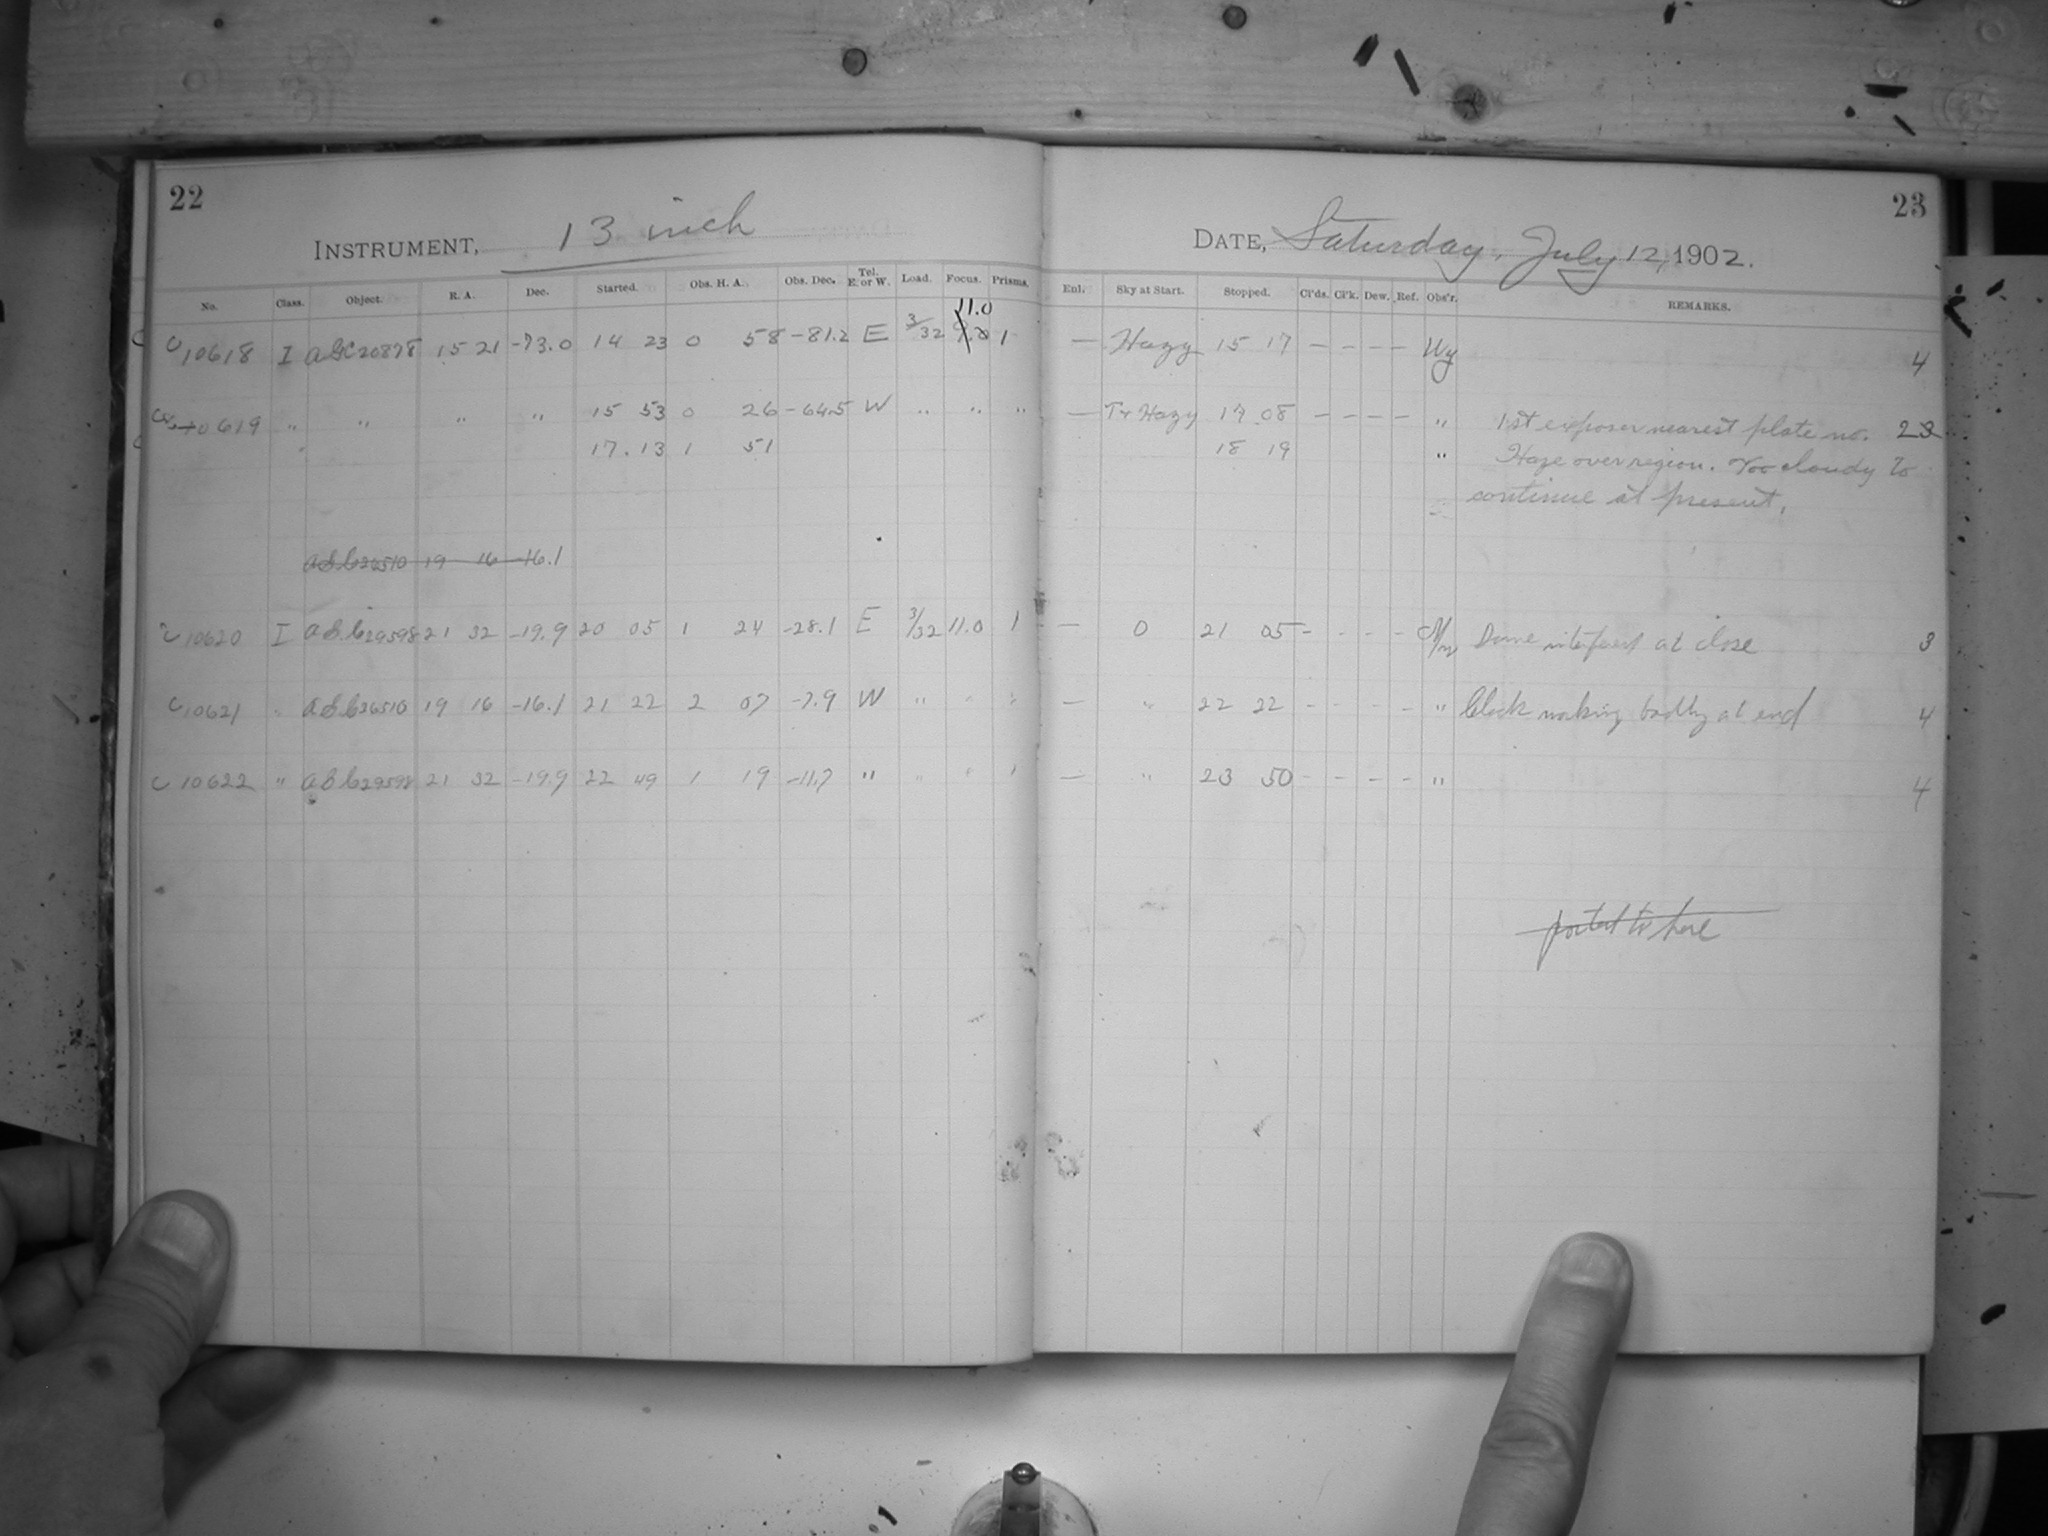 22
23
INSTRUMENT, 13 inch
DATE, Saturday, July 12, 1902.
No. Class. Object. R. A. Dec. Started. Obs. H. A. Obs. Dec. Tel. E. or W. Load. Focus. Prisms. Enl. Sky at Start. Stopped. Cl'ds. Cl'k. Dew. Ref. Obs'r. REMARKS.
11.0
C 10618 I AGC 20878 15 21 -73.0 14 23 0 58 -81.2 E 3/32 1 — Hazy 15 17 – – – – Wy 4
10619 " " " " 15 53 0 26 -64.5 W " " " — Tr Hazy 17 08 – – – – " 1st exposer nearest plate no. 23
17.13 1 51 18 19 " Haze over region. Too cloudy to
continue at present,
A.G.C. 26510 19 16 -16.1
C 10620 I A.G.C. 29598 21 32 -19.9 20 05 1 24 -28.1 E 3/32 11.0 1 — 0 21 05 - - - - Dome interferes at close 3
C 10621 " A.G.C. 26510 19 16 -16.1 21 22 2 07 -7.9 W " " " — " 22 22 - - - - " Clock working badly at end 4
C 10622 " A.G.C. 29598 21 32 -19.9 22 49 1 19 -11.7 " " " ' — " 23 50 - - - - " 4
posted to here